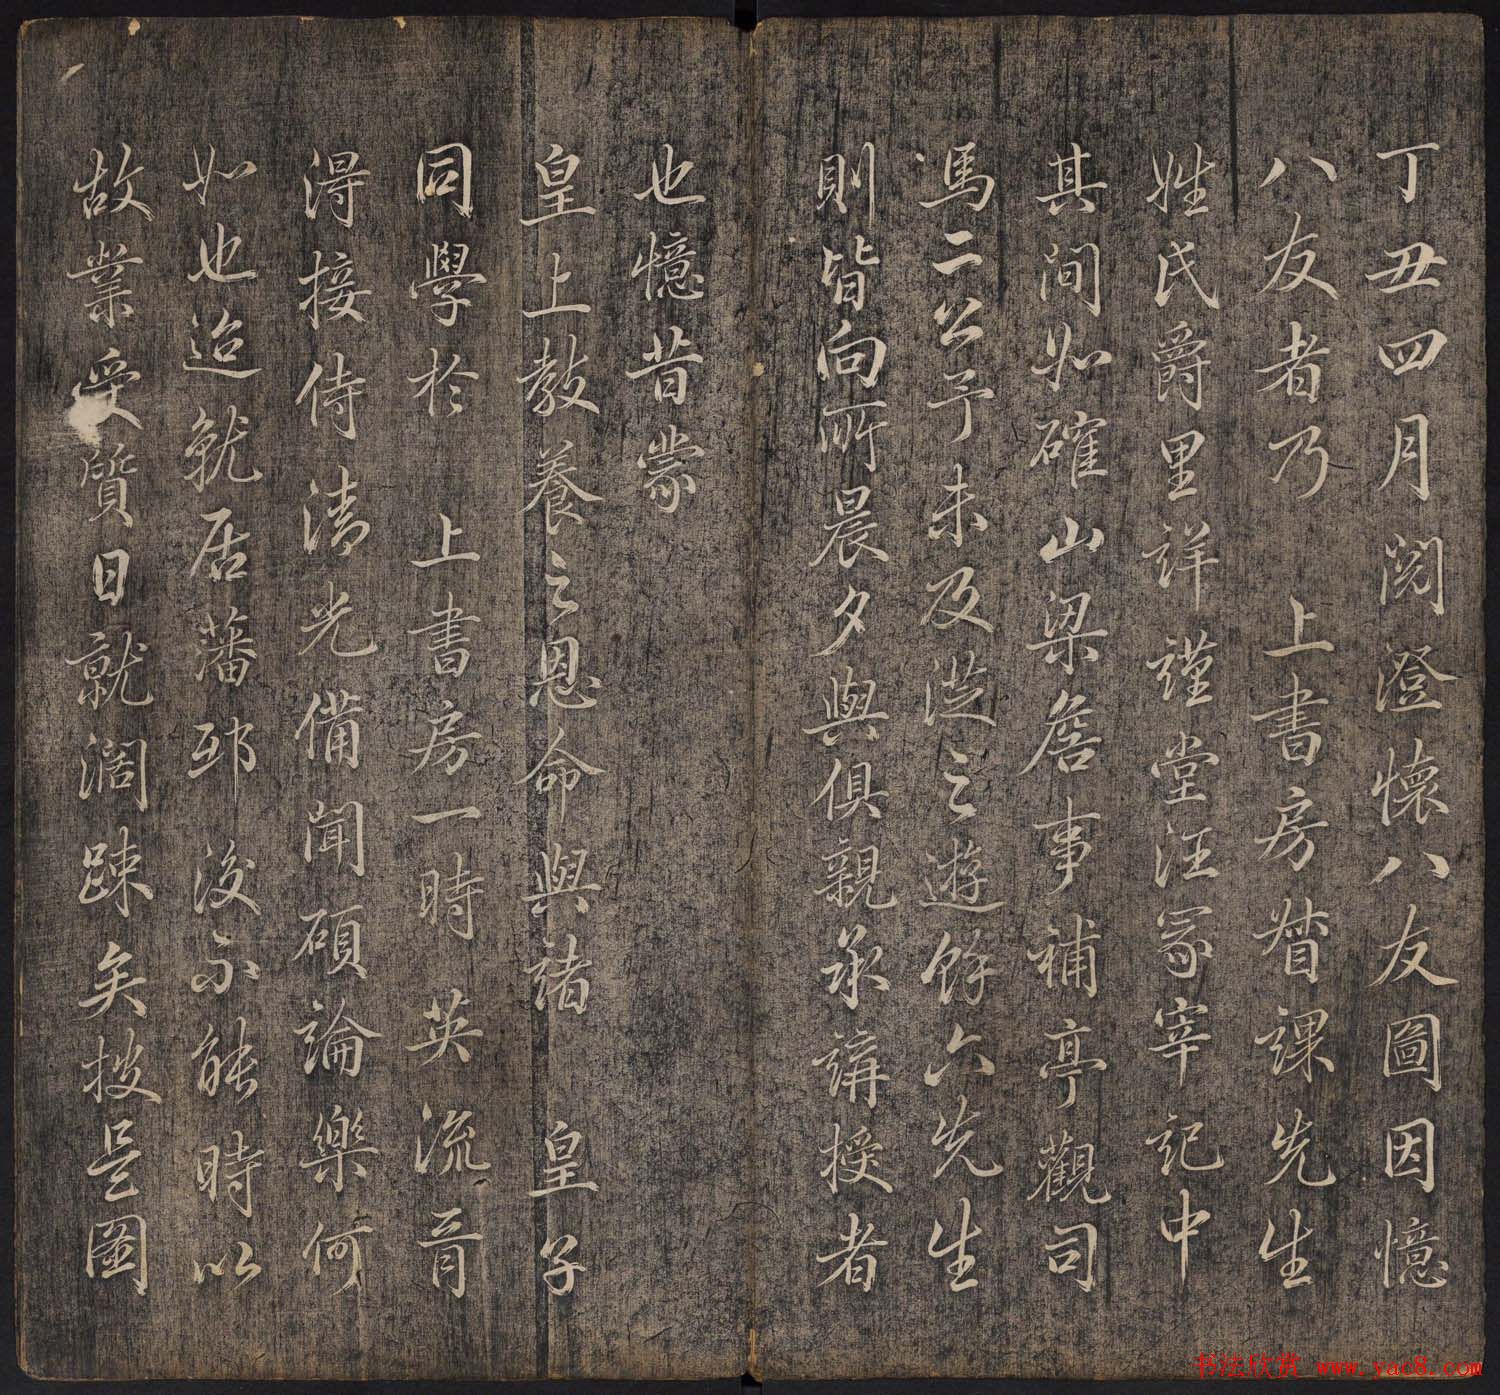 丁丑四月閱澄懷八友圖因憶
八友者乃 上書房督課先生
姓氏爵里詳謹堂汪冢宰記中
其間如確山梁詹事補亭觀司
馬二公予未及從之遊餘六先生
則皆向所晨夕與俱親承講授者
也憶昔蒙
皇上教養之恩命與諸 皇子
同學於 上書房一時英流胥
得接侍清光備聞碩論樂何
如也迨就居藩邸後不能時以
故業受質日就濶踈矣披是圖
书法欣赏 www.yac8.com